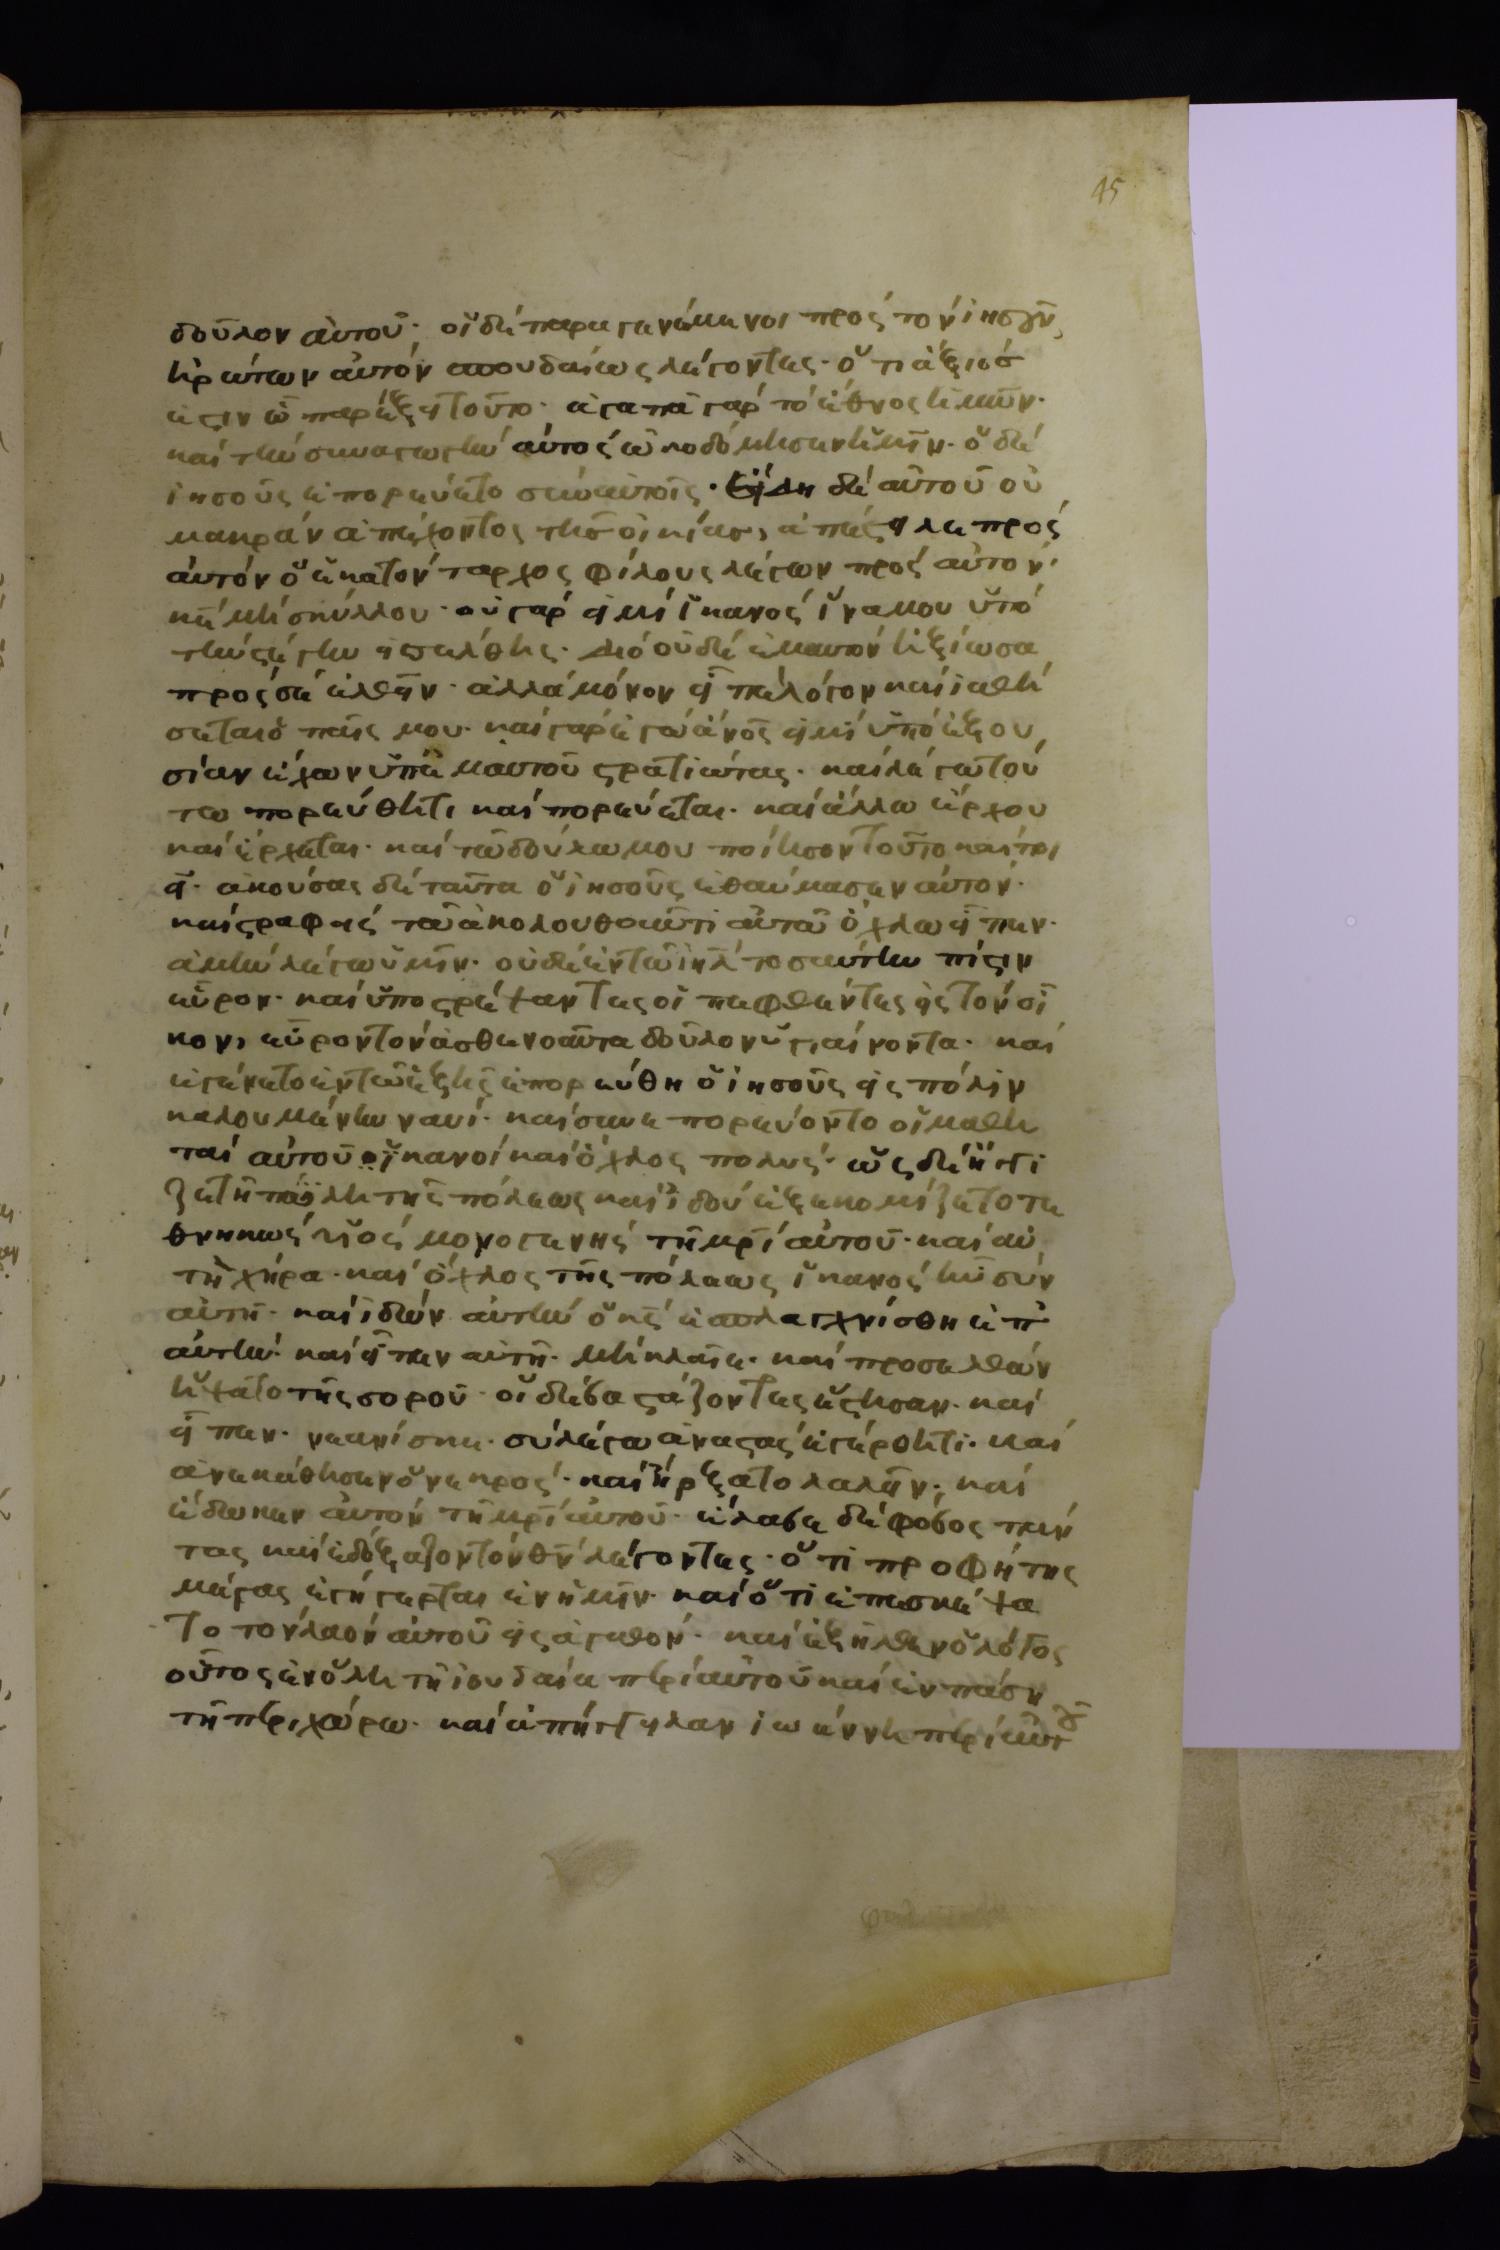 45
δοῦλον αὐτοῦ· οἱ δὲ παραγενόμενοι πρὸς τὸν ἰησοῦν
ἠρώτων αὐτὸν σπουδαίως λέγοντες· ὅτι ἄξιος
ἐστιν ᾧ παρέξει τοῦτο· ἀγαπᾶ γὰρ τὸ ἔθνος ἡμῶν·
καὶ τὴν συναγωγὴν αὐτὸς ὠκοδόμησεν ἡμῖν· ὁ δὲ
ἰησοῦς ἐπορεύετο σὺν αὐτοῖς· ἤδη δὲ αὐτοῦ οὐ
μακρὰν ἀπέχοντος τῆς οἰκίας, ἔπεμψε πρὸς
αὐτὸν ὁ ἑκατόνταρχος φίλους λέγων πρὸς αὐτόν·
κε μὴ σκύλλου· οὐ γὰρ εἰμὶ ἱκανὸς ἵνα μου ὑπὸ
τὴν στέγην εἰσέλθης· διὸ οὐδὲ ἐμαυτὸν ἠξίωσα
πρὸς σὲ ἐλθεῖν· ἀλλὰ μόνον εἰπὲ λόγον καὶ ἰαθή
σεται ὁ παῖς μου· καὶ γὰρ ἐγὼ ἄνος εἰμὶ ὑπὸ ἐξου
σίαν ἔχων ὑπ' ἐμαυτοῦ στρατιώτας· καὶ λέγω τού
τω πορεύθητι καὶ πορεύεται· καὶ ἄλλω ἔρχου
καὶ ἔρχεται· καὶ τῶ δούλω μου ποίησον τοῦτο καὶ ποι
εῖ· ἀκούσας δὲ ταῦτα ὁ ἰησοῦς ἐθαύμασεν αὐτόν·
καὶ στραφεὶς τῶ ἀκολουθοῦντι αὐτῶ ὄχλω εἶπεν·
ἀμὴν λέγω ὑμῖν· οὐδὲ ἐν τῶ ιηλ τοσαύτην πίστιν
εὗρον· καὶ ὑποστρέψαντες οἱ πεμφθέντες εἰς τὸν οἶ
κον, εὗρον τὸν ἀσθενοῦντα δοῦλον ὑγιαίνοντα· καὶ
ἐγένετο ἐν τῶ ἑξῆς ἐπορεύθη ὁ ἰησοῦς εἰς πόλιν
καλουμένην ναΐν· καὶ συνεπορεύοντο οἱ μαθη
ταὶ αὐτοῦ ἱκανοὶ καὶ ὄχλος πολύς· ὡς δὲ ἤγγι
ζε τῆ πύλη τῆς πόλεως καὶ ἰδοὺ ἐξεκομίζετο τε
θνηκὼς υἱὸς μονογενὴς τῆ μρὶ αὐτοῦ· καὶ αὐ
τὴ χήρα· καὶ ὄχλος τῆς πόλεως ἱκανὸς ἦν σὺν
αὐτῆ· καὶ ἰδὼν αὐτὴν ὁ κς ἐσπλαγχνίσθη ἐπ'
αὐτὴν· καὶ εἶπεν αὐτῆ· μὴ κλαῖε· καὶ προσελθὼν
ἥψατο τῆς σοροῦ· οἱ δὲ βαστάζοντες ἔστησαν· καὶ
εἶπεν· νεανίσκε· σοὶ λέγω ἀναστὰς ἐγέρθητι· καὶ
ἀνεκάθησεν ὁ νεκρός· καὶ ἤρξατο λαλεῖν· καὶ
ἔδωκεν αὐτὸν τῆ μρὶ αὐτοῦ· ἔλαβε δὲ φόβος πάν
τας καὶ ἐδόξαζον τὸν θν λέγοντες· ὅτι προφήτης
μέγας ἐγήγερται ἐν ἡμῖν· καὶ ὅτι ἐπεσκέψα
το τὸν λαὸν αὐτοῦ εἰς ἀγαθόν· καὶ ἐξῆλθεν ὁ λόγος
οὗτος ἐν ὅλη τῆ ἰουδαία περὶ αὐτοῦ καὶ ἐν πάση
τῆ περιχώρω· καὶ ἀπήγγειλαν ἰωάννη περὶ